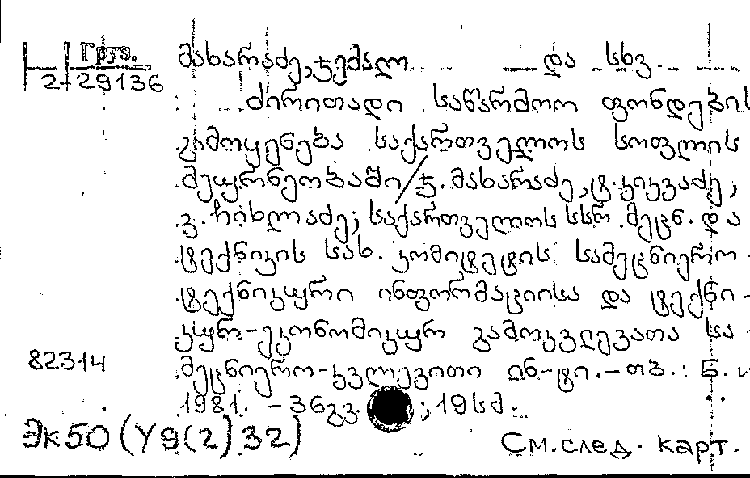 Груз.
2-29136
მახარაძე, ჯემალ და სხვ.
ძირითადი საწარმოო ფონდების
გამოყენება საქართველოს სოფლის
მეურნეობაში / ჯ. მახარაძე, ტ. კიკვაძე,
გ. ჩიხლაძე; საქართველოს სსრ მეცნ. და
ტექნიკის სახ. კომიტეტის სამეცნიერო-
ტექნიკური ინფორმაციისა და ტექნი-
კურ-ეკონომიკურ გამოკვლევათა სა-
მეცნიერო-კვლევითი ინ-ტი. - თბ. : Б. и
1981. - 36გვ ; 19სმ.
82314
Эк50(У9(2)32)
См. след. карт.